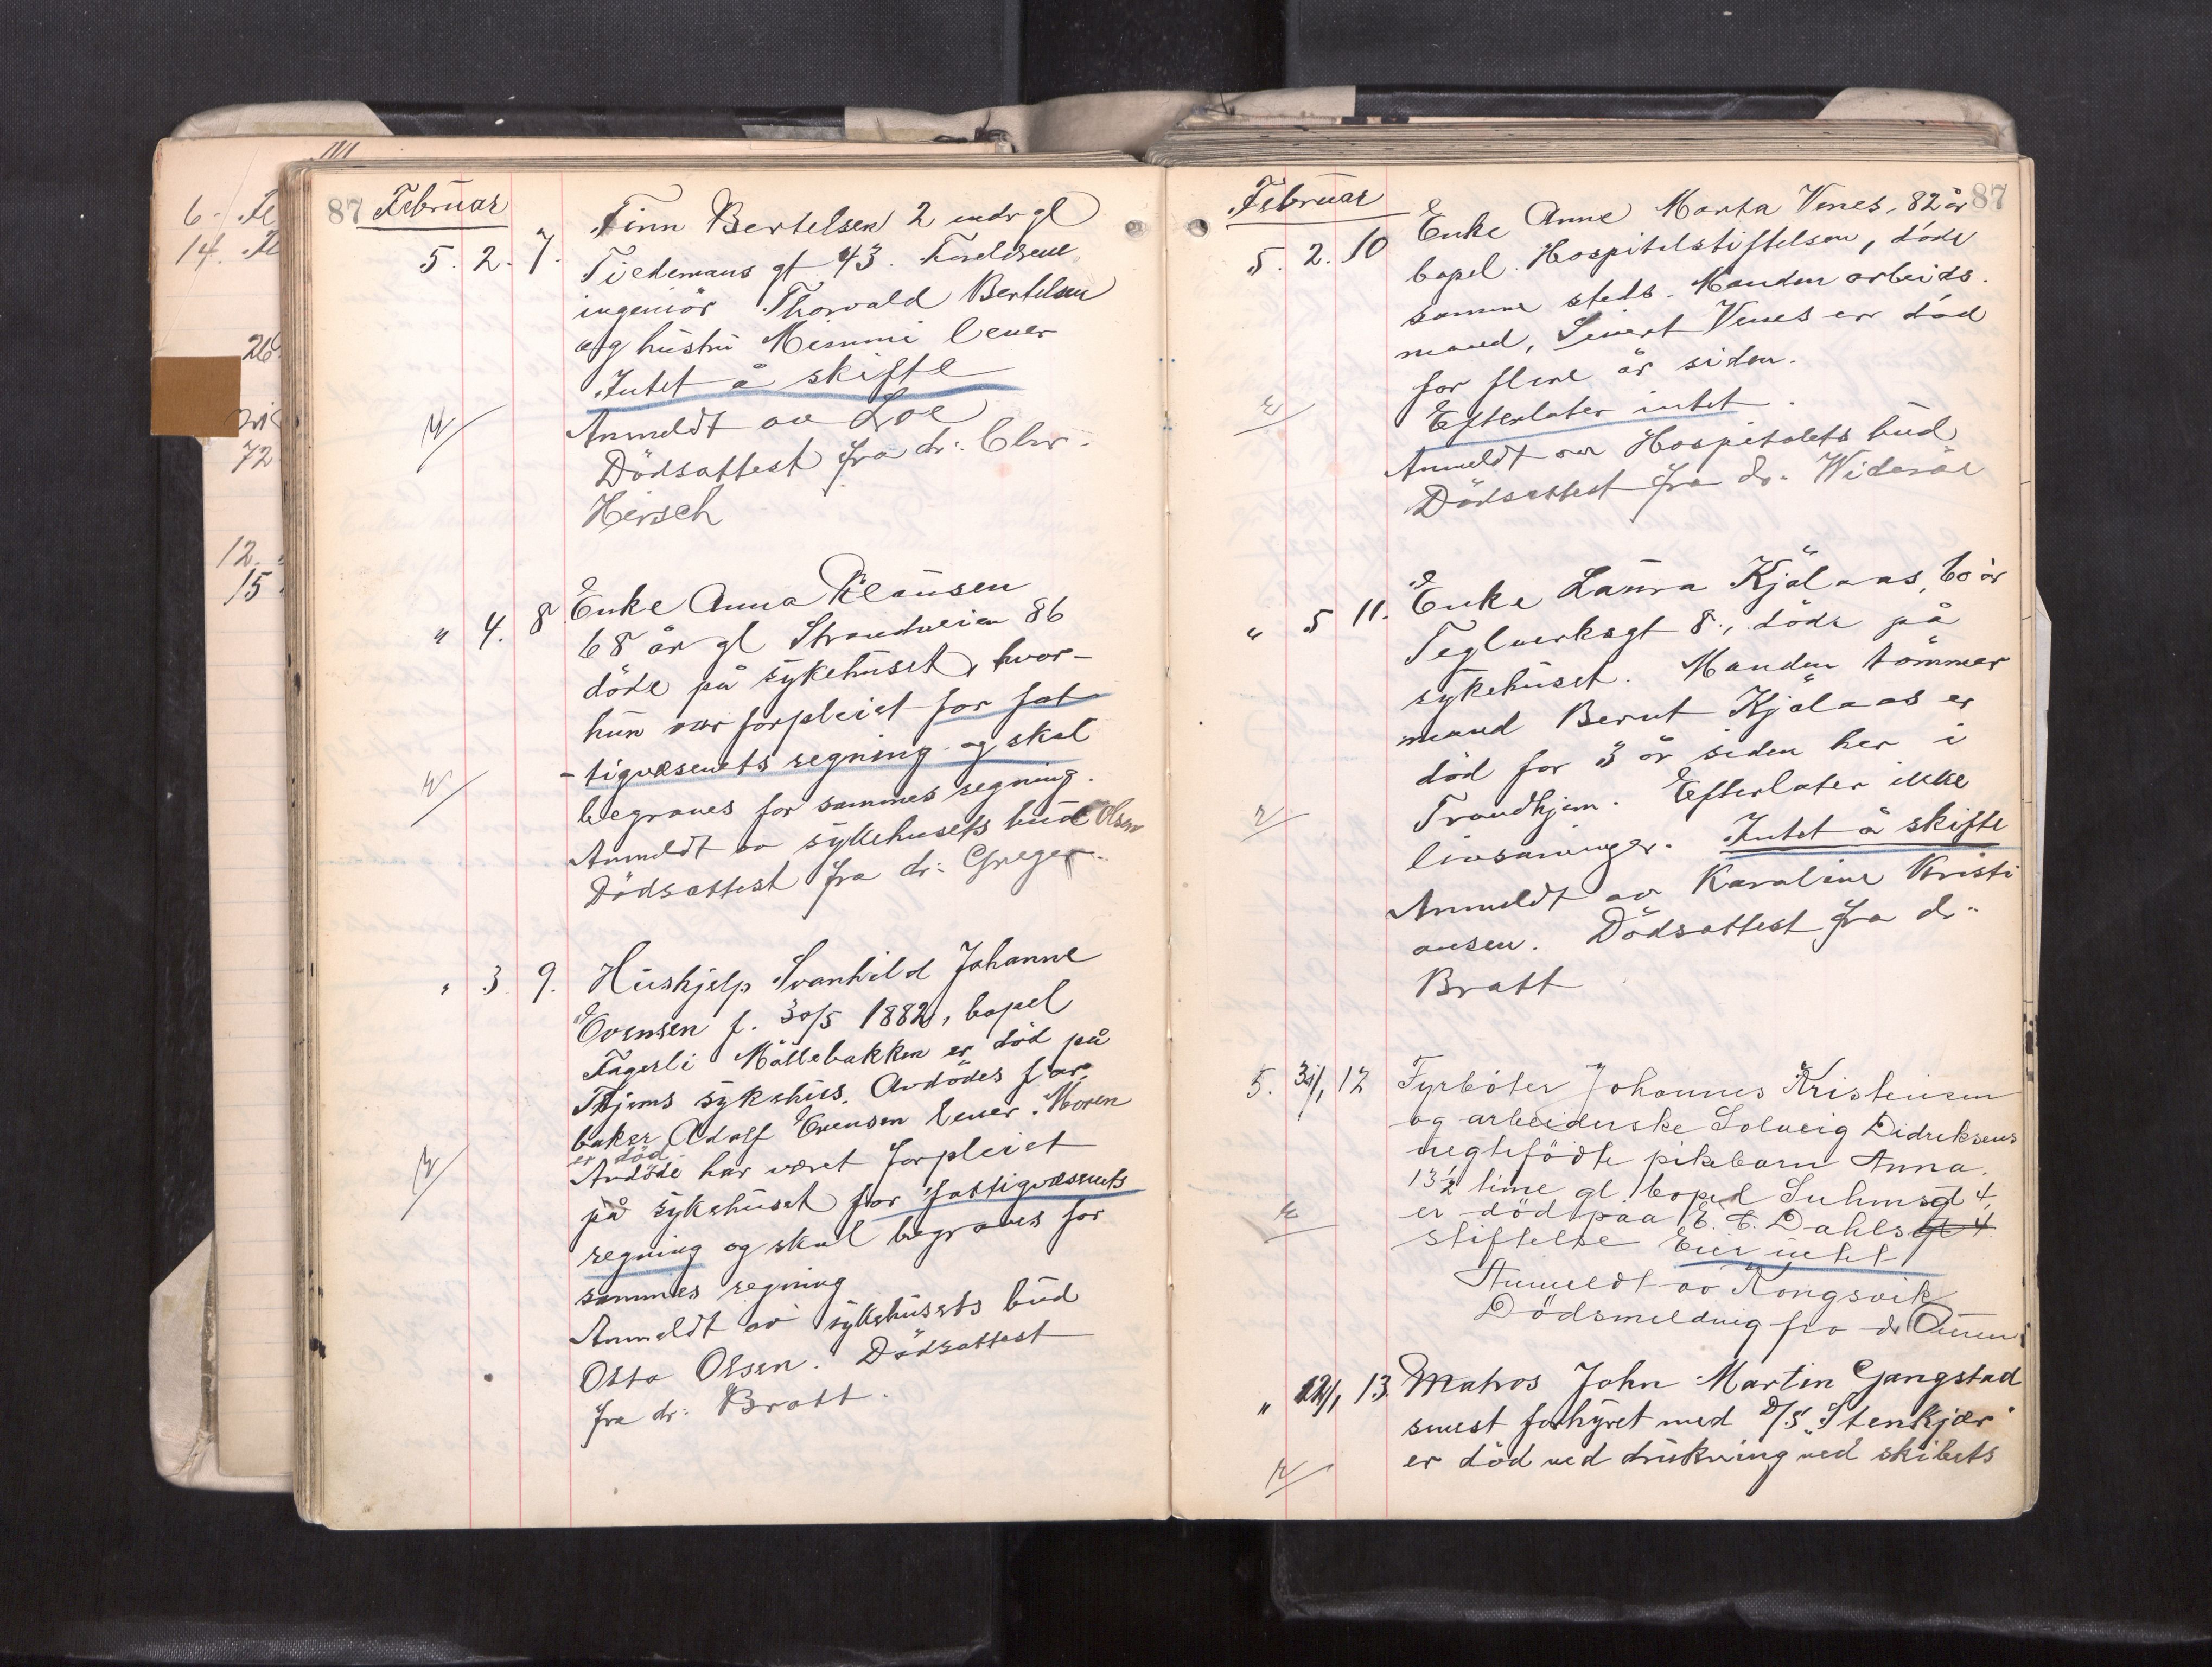 87 Februar
5. 2. 7. Finn Bertelsen 2 mdr gl
Tiedemans gt 43. Foreldrene
ingeniör Thorvald Bertelsen
og hustru Mimmi lever
Intet å skifte
Anmeldt av Loe
Dödsattest fra dr: Chr.
Hirsch
" 4. 8. Enke Anna Klausen
68 år gl Strandveien 86
döde på sykehuset, hvor-
hun var forpleiet for fat
-tigvæsenets regning og skal
begraves for sammes regning.
Anmeldt av sykehusets bud Olsen
Dödsattest fra dr: Greger
" 3 9. Hushjelp Svanhild Johanne
Evensen f. 30/5 1882, bopel
Fagerli Möllebakken er död på
Thjems sykehus. Avdödes far,
baker Adolf Evensen lever. Moren
er död
Avdöde har været forpleiet
på sykehuset for fattigvæsenets
regning og skal begraves for
sammes regning
Anmeldt av sykehusets bud
Otto Olsen. Dödsattest
fra dr: Bratt.
Februar 87
5. 2. 10 Enke Anne Marta Venes, 82 år
bopel. Hospitalstiftelsen, döde
samme steds. Manden arbeids.
mand, Sivert Venes er död
for flere år siden.
Efterlater intet.
Anmeldt av Hospitalets bud
Dödsattest fra dr. Wideröe
" 5 11. Enke Laura Kjölaas, 60 år
Teglverksgt 8., döde på
sykehuset. Manden tömmer
mand Bernt Kjölaas er
död for 3 år siden her i
Trondhjem. Efterlater ikke
livsarvinger. Intet å skifte
Anmeldt av Karoline Kristi
ansen. Dödsattest fra dr.
Bratt
5. 31/1 12 Fyrböter Johannes Kristensen
og arbeiderske Solveig Didreksens
uegtefödte pikebarn Anna.
13½ time gl. bopel Suhmsgt 4,
er död paa E. C. Dahls gt 4
stiftelse Eier intet
Anmeldt av Kongsvik
Dödsmelding fra dr
" 12/1 13. Matros John Martin Gangstad
senest forhyret med D/S "Stenkjær"
er död ved drukning ved skibets
6-
14.
26
72
12.
15